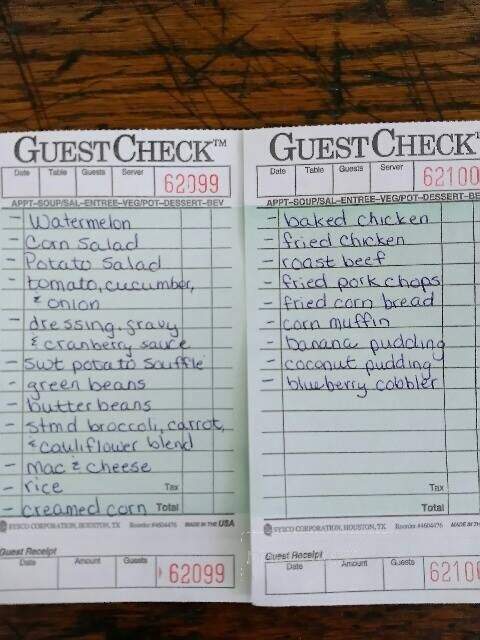 GUEST CHECK™
Date Table Guests Server 62099
APPT-SOUP/SAL-ENTREE-VEG/POT-DESSERT-BEV
- Watermelon
- Corn Salad
- Potato Salad
- tomato, cucumber,
& onion
- dressing, gravy
& cranberry sauce
- swt potato souffle
- green beans
- butter beans
- stmd broccoli, carrot,
& cauliflower blend
- Mac & cheese
- rice Tax
- creamed corn Total
SYSCO CORPORATION, HOUSTON, TX Reorder #4604476 MADE IN THE USA
Guest Receipt
Date Amount Guests 62099
GUEST CHECK
Date Table Guests Server 62100
APPT-SOUP/SAL-ENTREE-VEG/POT-DESSERT-BEV
- baked chicken
- fried chicken
- roast beef
- fried pork chops
- fried corn bread
- corn muffin
- banana pudding
- coconut pudding
- blueberry cobbler
Tax
Total
SYSCO CORPORATION, HOUSTON, TX Reorder #4604476 MADE IN TH
Guest Receipt
Date Amount Guests 6210